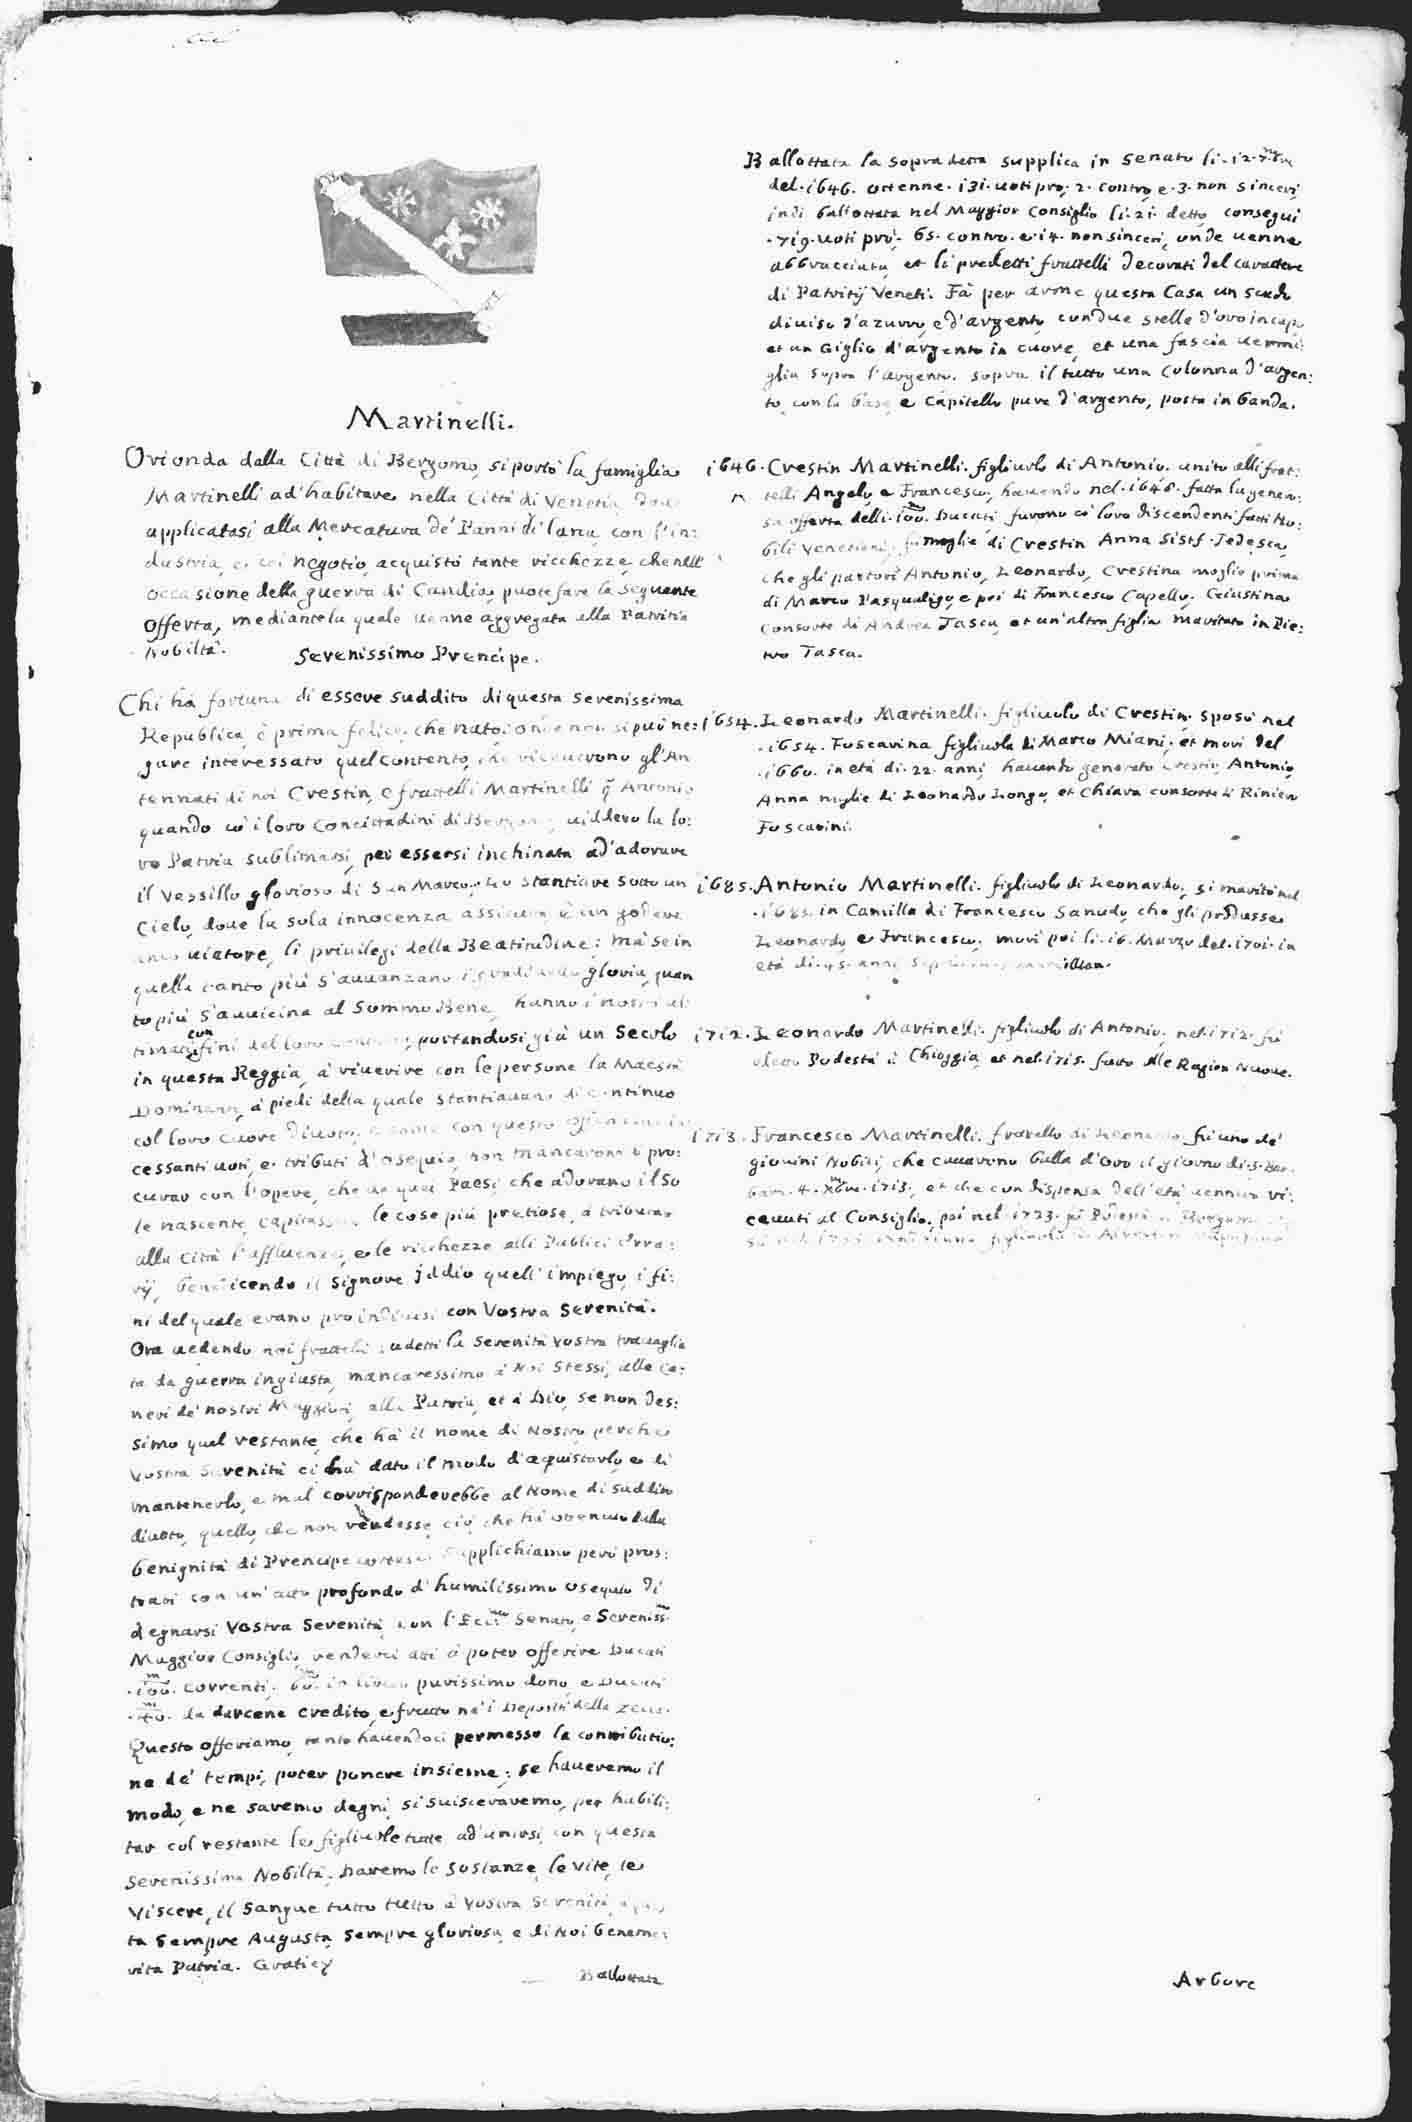 Martinelli.
Orionda dalla Città di Bergomo, si portò la famiglia
Martinelli ad'habitare nella Città di Venetia, doue
applicatasi alla Mercatura de' Panni di lana, con l'in:
dustria, e coi negotio, acquistò tante ricchezze, che nell'
occasione della guerra di Candia, puote fare la seguente
offerta, mediante la quale uenne aggregata alla Patritia
Nobiltà.
Serenissimo Prencipe.
Chi hà fortuna di essere suddito di questa Serenissima
Republica, è prima felice, che nato: onde non si può ne:
gare interessato quel contento, che riceuerono gl'An
tennati di noi Crestin, e fratelli Martinelli Antonio
quando co' i loro Concittadini di Bergomo, uiddero la lo:
ro Patria sublimarsi, per essersi inchinata ad'adorare
il Vessillo glorioso di San Marco. Lo stantiare sotto un
Cielo, doue la sola innocenza assicura è un godere
anco uiatore, li priuilegi della Beatitudine; mà se in
quella tanto più s'auuanzano i gradi della gloria, quan
to più s'auuicina al Sommo Bene, hanno i nostri ul
timati con fini del loro portandosi già un secolo
in questa Reggia, à riuerire con le persone la Maestà
Dominante, à piedi della quale stantiauano di continuo
col loro cuore diuoto, e come con questo
cessanti uoti, e tributi d'osequio, non mancarono di pro:
curar con l'opere, che da quei Paesi, che adorano il So
le nascente, capitassero le cose più pretiose, à tributar
alla Città l'affluenza, e le ricchezze alli Publici Erra:
rij, benedicendo il Signore Iddio quell'impiego, i fi:
ni del quale erano pro indiuisi con Vostra Serenità.
Ora uedendo noi fratelli sudetti la Serenità Vostra trauaglia
ta da guerra ingiusta, mancaressimo à Noi Stessi, alle Ce:
neri de' nostri Maggiori, alla Patria, et à Dio, se non des:
simo quel restante, che hà il nome di Nostro, perche
Vostra Serenità ci hà dato il modo d'acquistarlo, e di
mantenerlo, e mal corrisponderebbe al Nome di suddito
diuoto, quello, che non rendesse, ciò, che hà otenuto dalla
benignità di Prencipe cortese. Supplichiamo però pros:
trati con un'atto profondo d'humilissimo osequio di
degnarsi Vostra Serenità, con l'Ecc.mo Senato, e Sereniss.mo
Maggior Consiglio, renderci atti à poter offerire Ducati
.100.m correnti; .60.m in libero purissimo dono, e Ducati
.40.m da darcene credito, e frutto ne' i Depositi della Zecca.
Questo offeriamo, tanto hauendoci permesso la contributio:
ne de' tempi, poter ponere insieme; se haueremo il
modo, e ne saremo degni, si suisceraremo, per habili:
tar col restante le figliuole tutte ad'unirsi, con questa
Serenissima Nobiltà. Daremo le sostanze, le vite, le
Viscere, il Sangue tutto tutto à Vostra Serenità,
ta sempre Augusta, sempre gloriosa, e di Noi Beneme:
rita Patria. Gratie &
Ballottata
Ballottata la sopradetta supplica in Senato li. 12. 7.bre
del. 1646. ottenne. 131. uoti pro; 2. contro, e. 3. non sinceri,
indi ballottata nel Maggior Consiglio li. 21. detto, conseguì
.719. uoti prò. 65. contro. e. 14. non sinceri, onde uenne
abbracciata, et li predetti frattelli decorati del carattere
di Patritij Veneti. Fà per arme questa Casa un scudo
diuiso d'azurro, e d'argento, con due stelle d'oro in capo,
et un Giglio d'argento in cuore, et una fascia uermi:
glia sopra l'argento. sopra il tutto una Colonna d'argen:
to, con la base e Capitello pure d'argento, posta in banda.
1646. Crestin Martinelli. figliuolo di Antonio. unito alli frat:
telli Angelo, e Francesco, hauendo nel. 1646. fatta la genero:
sa offerta delli. 100.m Ducati, furono co' loro discendenti fatti No:
bili Venetiani; fù moglie di Crestin Anna Sists Tedesca,
che gli partorì Antonio, Leonardo, Crestina moglie prima
di Marco Pasqualigo, e poi di Francesco Capello, Giustina
consorte di Andrea Tasca, et un'altra figlia maritata in Pie:
tro Tasca.
1654. Leonardo Martinelli. figliuolo di Crestin. sposò nel
.1654. Foscarina figliuola di Marco Miani; et morì del
.1660. in età di. 22. anni, hauendo generato Crestin, Antonio,
Anna moglie di Leonardo Longo, et Chiara consorte di Rinier
Foscarini.
1685. Antonio Martinelli. figliuolo di Leonardo, si maritò nel
.1685. in Camilla di Francesco Sanudo, che gli produsse
Leonardo, e Francesco, morì poi li. 16. Marzo del. 1701. in
età di. 45. anni
1712. Leonardo Martinelli. figliuolo di Antonio, nel. 1712. fù
eletto Podestà à Chioggia, et nel. 1715. fatto alle Ragion Nuoue.
1713. Francesco Martinelli. fratello di Leonardo, fù uno de'
giouini Nobili, che cauarono balla d'oro il giorno di. S. Bar:
bara. 4. Xbre. 1713., et che con dispensa dell'età uennero ri:
ceuuti al Consiglio, poi nel. 1723. fù Podestà à Bergamo
figliuola di
Arbore